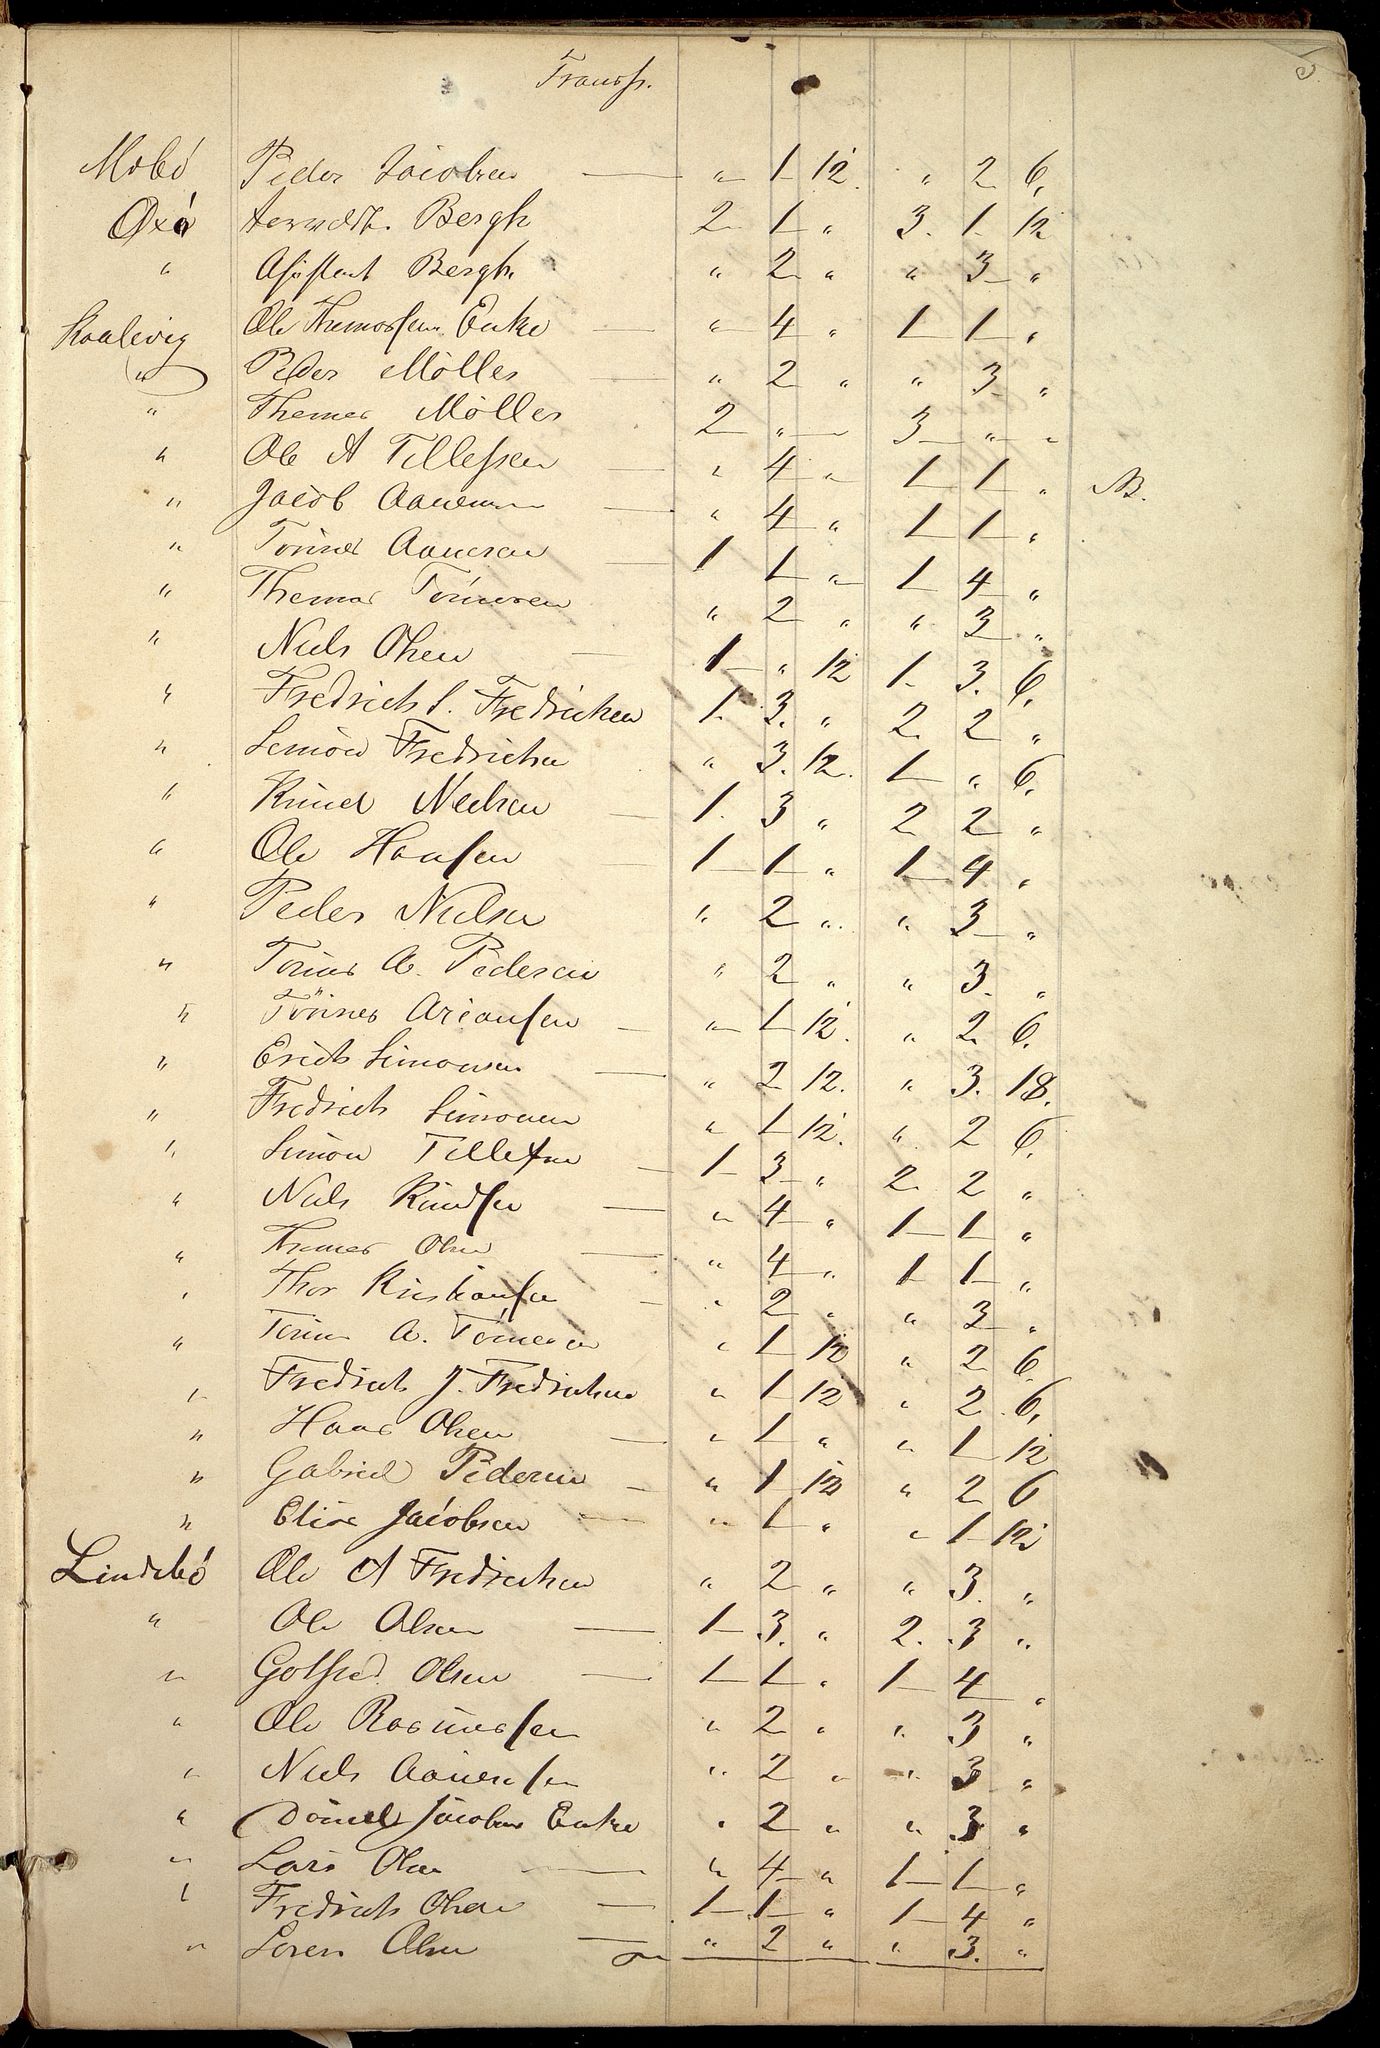 Transp. 5.
Mobö Peder Jacobsen — " 1 12. " 2 6.
Oxö Bergh 2 1 " 3. 1 12
" Assistent Bergh " 2 " " 3 "
Kaalevig Ole Thomassens Enke — " 4 " 1 1 "
" Peder Möller — " 2 " " 3 "
" Thomas Möller 2 " — 3 " "
" Ole A Tellefsen — " 4 " 1 1 " NB.
" Jacob Aanensen — " 4 " 1 1 "
" Tönnes Aanesen — 1 1 " 1 4 "
" Thomas Tönnesen " 2 " " 3 "
" Niels Olsen — 1 " 12 1 3. 6.
" Fredrich S. Fredrichsen 1. 3. " 2 2 "
" Simon Fredrichsen " 3. 12. 1 " 6.
" Knud Nielsen — 1. 3 " 2 2 "
" Ole Hansen — 1 1 " 1 4 "
" Peder Nielsen " 2 " " 3 "
" Tönnes A. Pedersen " 2 " " 3. "
" Tönnes Ariansen — " 1 12. " 2 6.
" Erich Simonsen — " 2 12. " 3. 18.
" Fredrich Simonsen " 1 12. " 2 6.
" Simon Tellefsen — 1 3 " 2 2 "
" Niels Knudsen — " 4 " 1 1 "
" Thomas Olsen — " 4 " 1 1 "
" Thor Kristiansen — " 2 " " 3 "
" Tönnes A. Tönnesen " 1 12 " 2 6.
" Fredrich J. Fredrichsen " 1 12 " 2 6.
" Hans Olsen — " 1 " " 1 12
" Gabriel Pedersen — " 1 12 " 2 6
" Elise Jacobsen — " 1 " " 1 12
Lindebö Ole A Fredrichsen " 2 " " 3. "
" Ole Olsen — 1 3. " 2. 3 "
" Gotfred Olsen — 1 1 " 1 4 "
" Ole Rasmussen " 2 " " 3 "
" Niels Aanensen " 2 " " 3 "
" Daniel Jacobsens Enke " 2 " " 3 "
" Lars Olsen — " 4 " 1 1 "
" Fredrich Olsen — 1 1 " 1 4 "
" Sören Olsen — " 2 " " 3. "